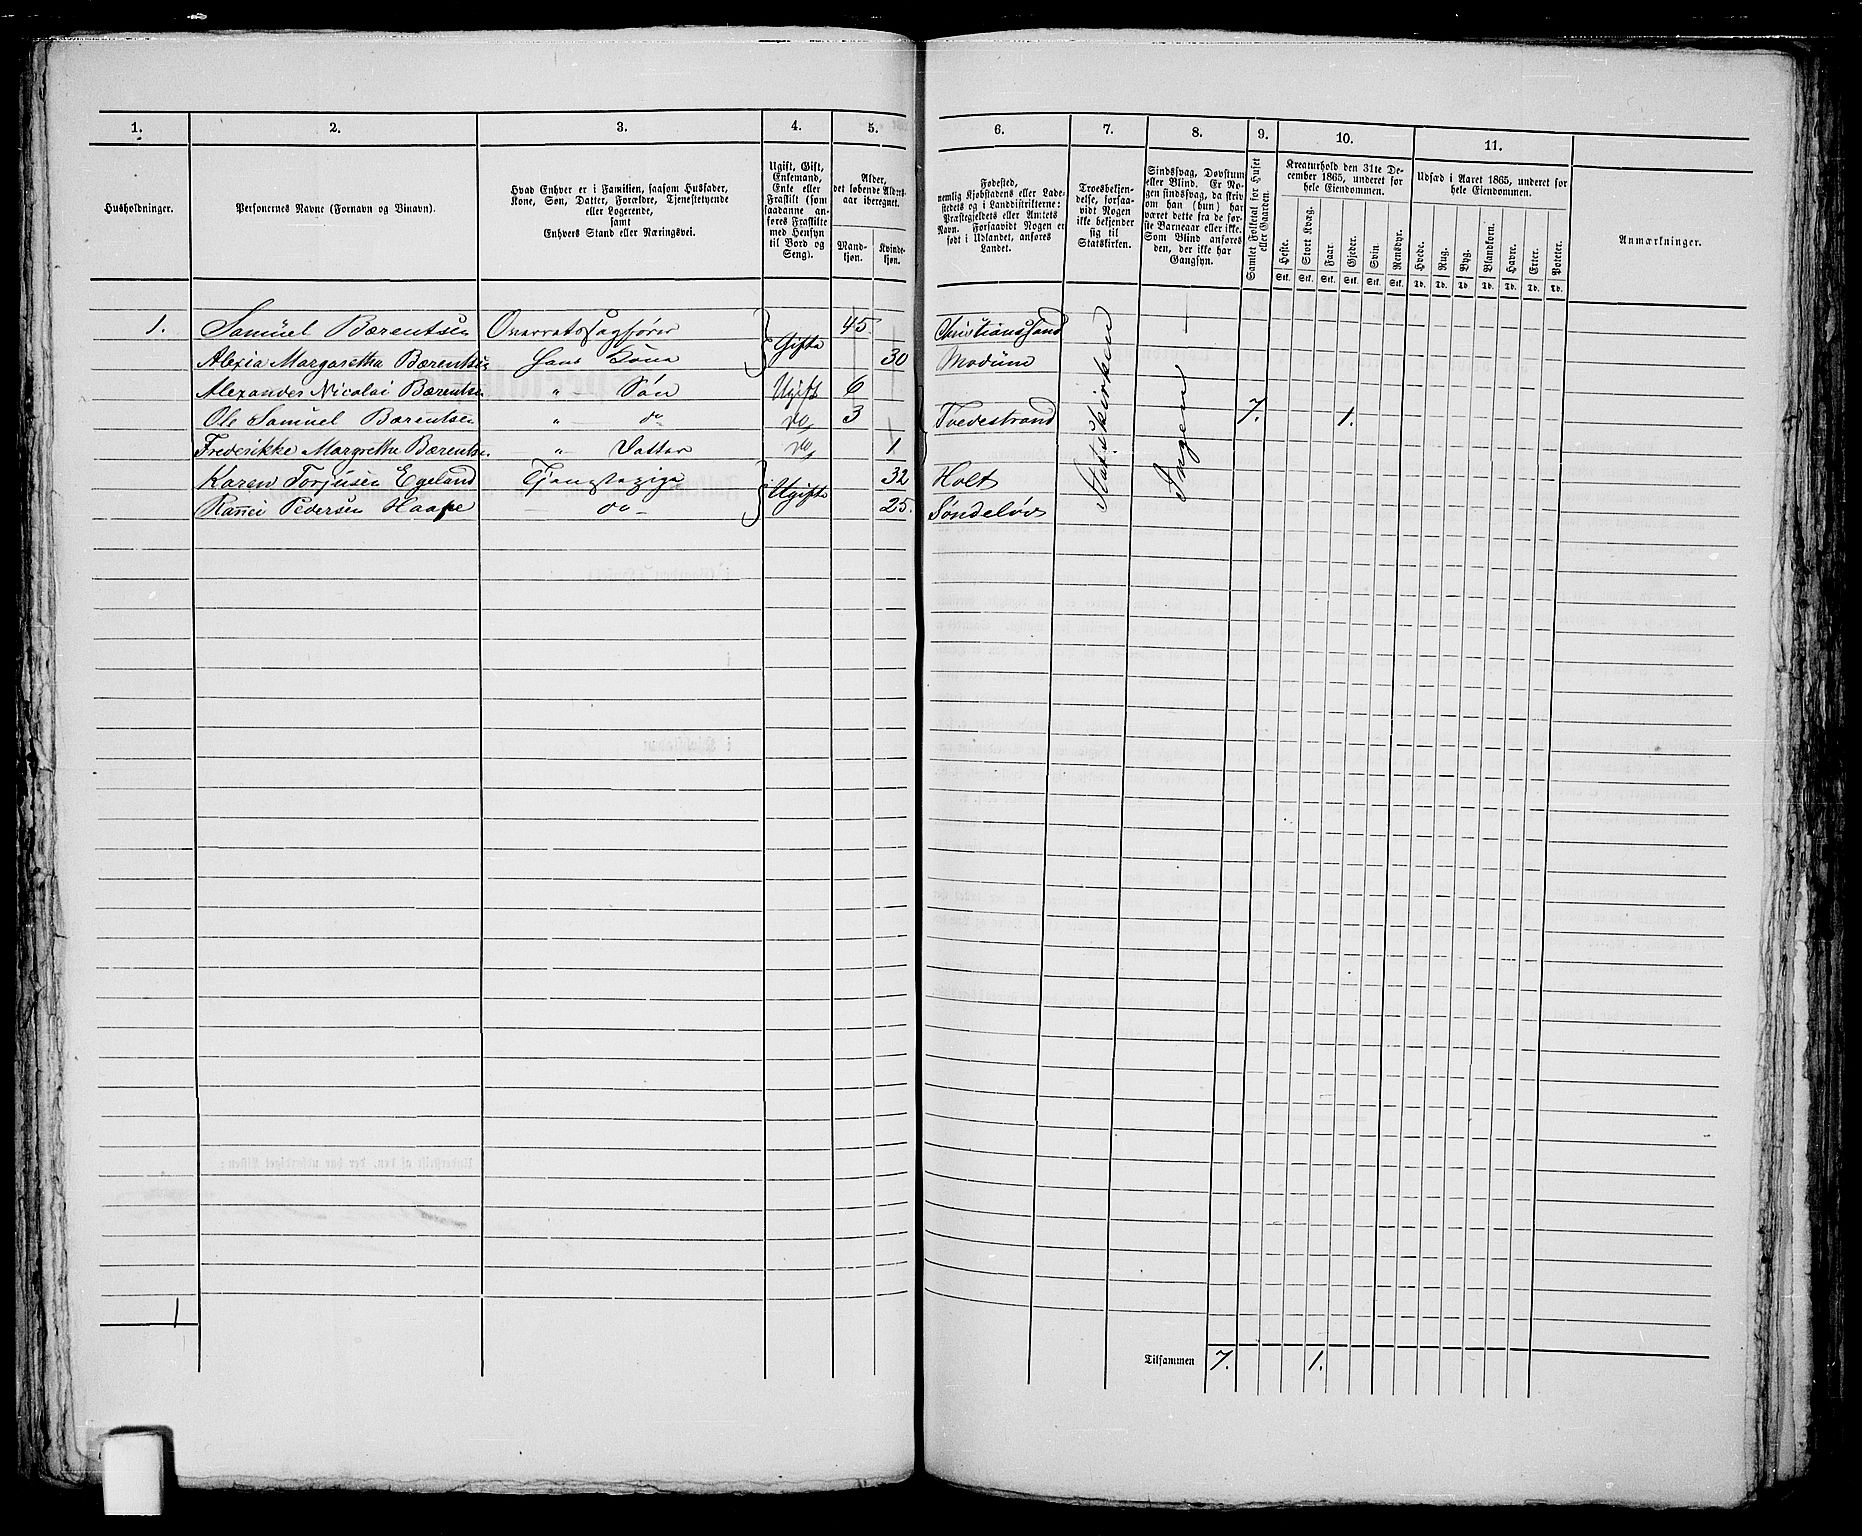 1. 2. 3. 4. 5. 6. 7. 8. 9. 10. 11.
Husholdninger.
Personernes Navne (Fornavn og Vinavn).
Hvad Enhver er i Familien, saasom Husfader,
Kone, Søn, Datter, Forældre, Tjenestetyende
eller Logerende,
samt
Enhvers Stand eller Næringsvei.
Ugift, Gift,
Enkemand,
Enke eller
Fraskilt (som
saadanne an-
føres Fraskilte
med Hensyn
til Bord og
Seng).
Alder,
det løbende Alders-
aar iberegnet.
Mand-
kjøn.
Kvinde-
kjøn.
Fødested,
nemlig Kjøbstadens eller Lade-
stedets og i Landdistrikterne:
Præstegjeldets eller Amtets
Navn. Forsaavidt Nogen er
født i Udlandet, anføres
Landet.
Troesbekjen-
delse, forsaa-
vidt Nogen
ikke bekjender
sig til
Statskirken.
Sindssvag, Døvstum
eller Blind. Er No-
gen sindssvag, da skriv
om han (hun) har
været dette fra de før-
ste Barneaar eller ikke.
Som Blind anføres
den, der ikke har
Gangsyn.
Samlet Folketal for Huset
eller Gaarden.
Kreaturhold den 31te De-
cember 1865, underet for
hele Eiendommen.
Heste. Stort Kvæg. Faar. Gjeder. Svin. Rensdyr.
Stk. Stk. Stk. Stk. Stk. Stk.
Udsæd i Aaret 1865, underet for
hele Eiendommen.
Hvede. Rug. Byg. Blandkorn. Havre. Erter. Poteter.
Td. Td. Td. Td. Td. Td. Td.
Anmærkninger.
1. Samuel Bærentsen Overretssagfører Gifte 45 Christianssand Statskirken Ingen
Alexia Margaretha Bærentsen Hans Kone 30 Modum
Alexander Nicolai Bærentsen " Søn Ugift 6
Ole Samuel Bærentsen " do do 3 Tvedestrand 7. 1.
Frederikke Margrethe Bærentsen " Datter do 1
Karen Torjusen Egeland Tjenestepige Ugifte 32 Holt
Pedersen do 25. Søndeløv
1
Tilsammen 7. 1.